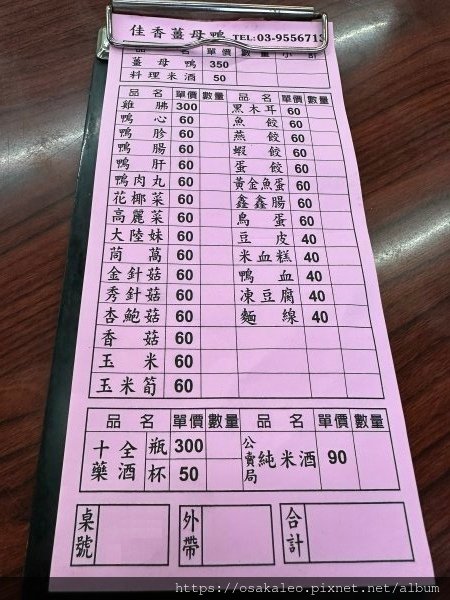 佳香薑母鴨 TEL:03-955671
品名 單價 數量 小計
薑母鴨 350
料理米酒 50
品名 單價 數量 品名 單價 數量
雞腿 300 黑木耳 60
鴨心 60 魚餃 60
鴨胗 60 燕餃 60
鴨腸 60 蝦餃 60
鴨肝 60 蛋餃 60
鴨肉丸 60 黃金魚蛋 60
花椰菜 60 鑫鑫腸 60
高麗菜 60 鳥蛋 60
大陸妹 60 豆皮 40
茼萵 60 米血糕 40
金針菇 60 鴨血 40
秀針菇 60 凍豆腐 40
杏鮑菇 60 麵線 40
香菇 60
玉米 60
玉米筍 60
品名 單價 數量 品名 單價 數量
十全藥酒 瓶 300 公賣局純米酒 90
杯 50
桌號 外帶 合計
https://osakaleo.pixnet.net/album